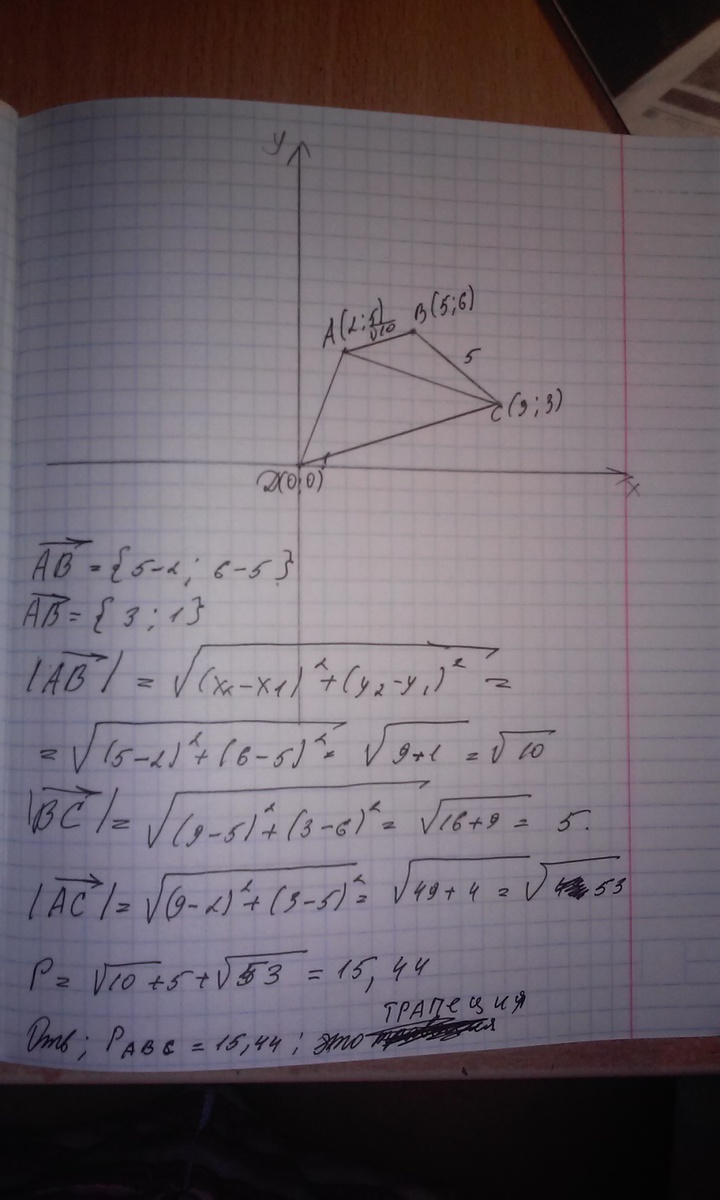 y
A(2;5) B(5;6)
√10
5
C(9;3)
D(0;0)
x
AB = {5-2; 6-5}
AB = {3; 1}
|AB| = √(x₂-x₁)²+(y₂-y₁)² =
= √(5-2)²+(6-5)² = √9+1 = √10
|BC| = √(9-5)²+(3-6)² = √16+9 = 5.
|AC| = √(9-2)²+(3-5)² = √49+4 = √53
P = √10+5+√53 = 15,44
Отв; P ABC = 15,44; это ТРАПЕЦИЯ